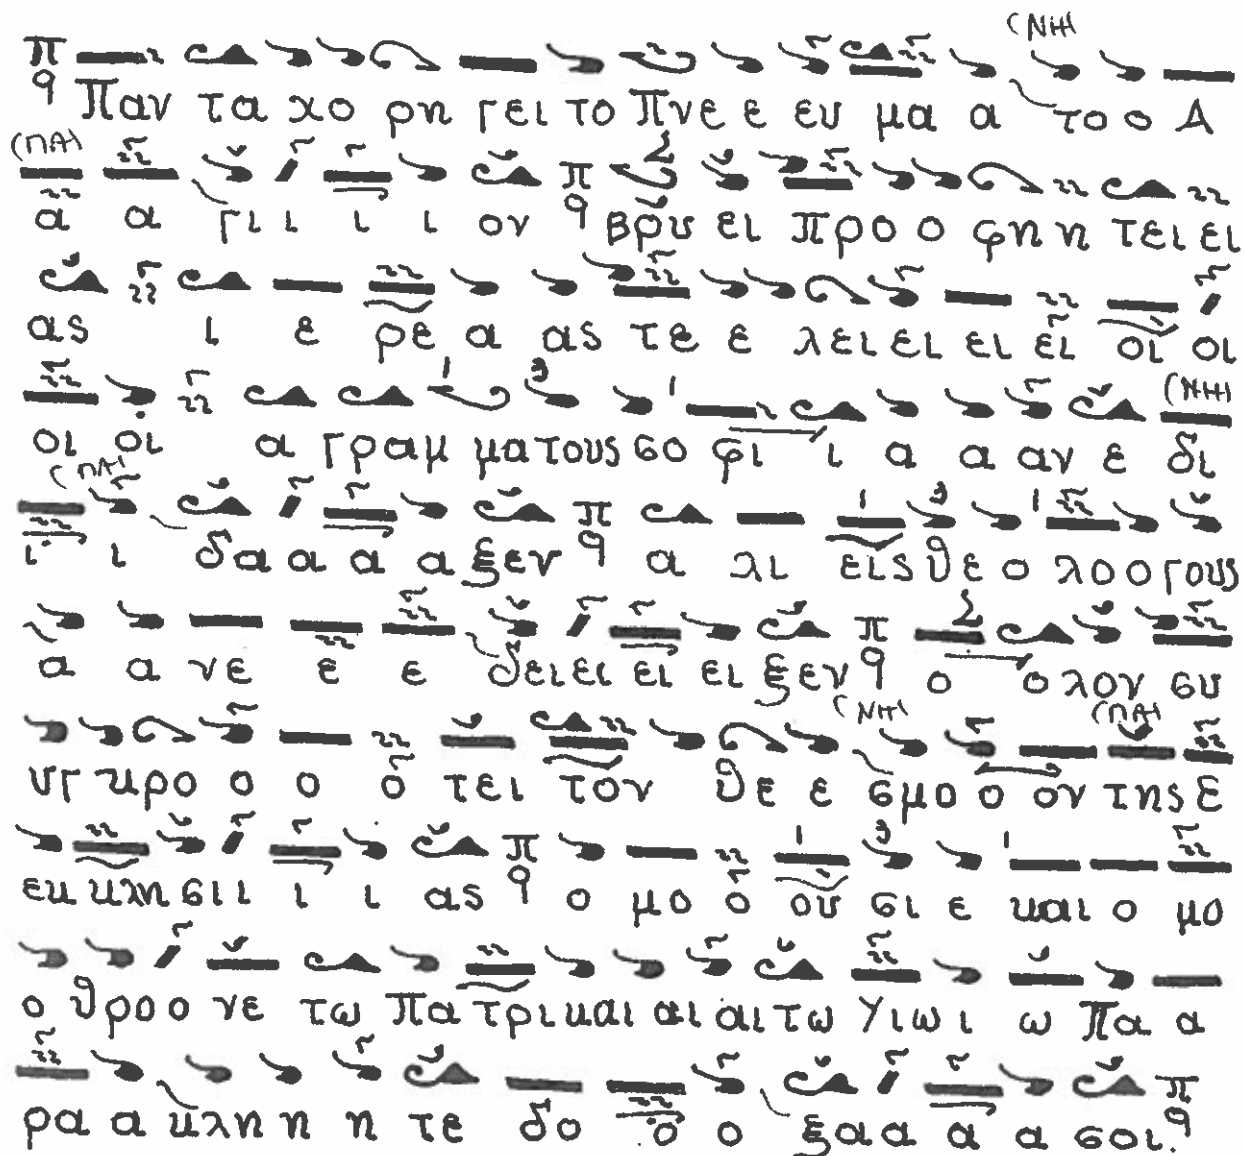 (ΝΗ)
π
q Παν τα χο ρη γει το Πνε ε ευ μα α το ο Α
(ΠΑ)
α α γι ι ι ι ον π q βρυ ει προ ο φη η τει ει
ας ι ε ρε α ας τε ε λει ει ει ει οι οι
(ΝΗ)
οι οι α γραμ μα τους σο φι ι α α αν ε δι
(ΠΑ)
ι ι δα α α α ξεν π q α λι εις θε ο λο ο γους
α α νε ε ε δει ει ει ει ξεν π q ο ο λον συ
(ΝΗ) (ΠΑ)
υγ κρο ο ο ο τει τον θε ε σμο ο ον της Ε
εκ κλη σι ι ι ι ας π q ο μο ο ου σι ε και ο μο
ο θρο ο νε τω Πα τρι και αι αι τω Υι ω ι ω Πα α
ρα α κλη η η τε δο ο ο ξα α α α σοι. π q